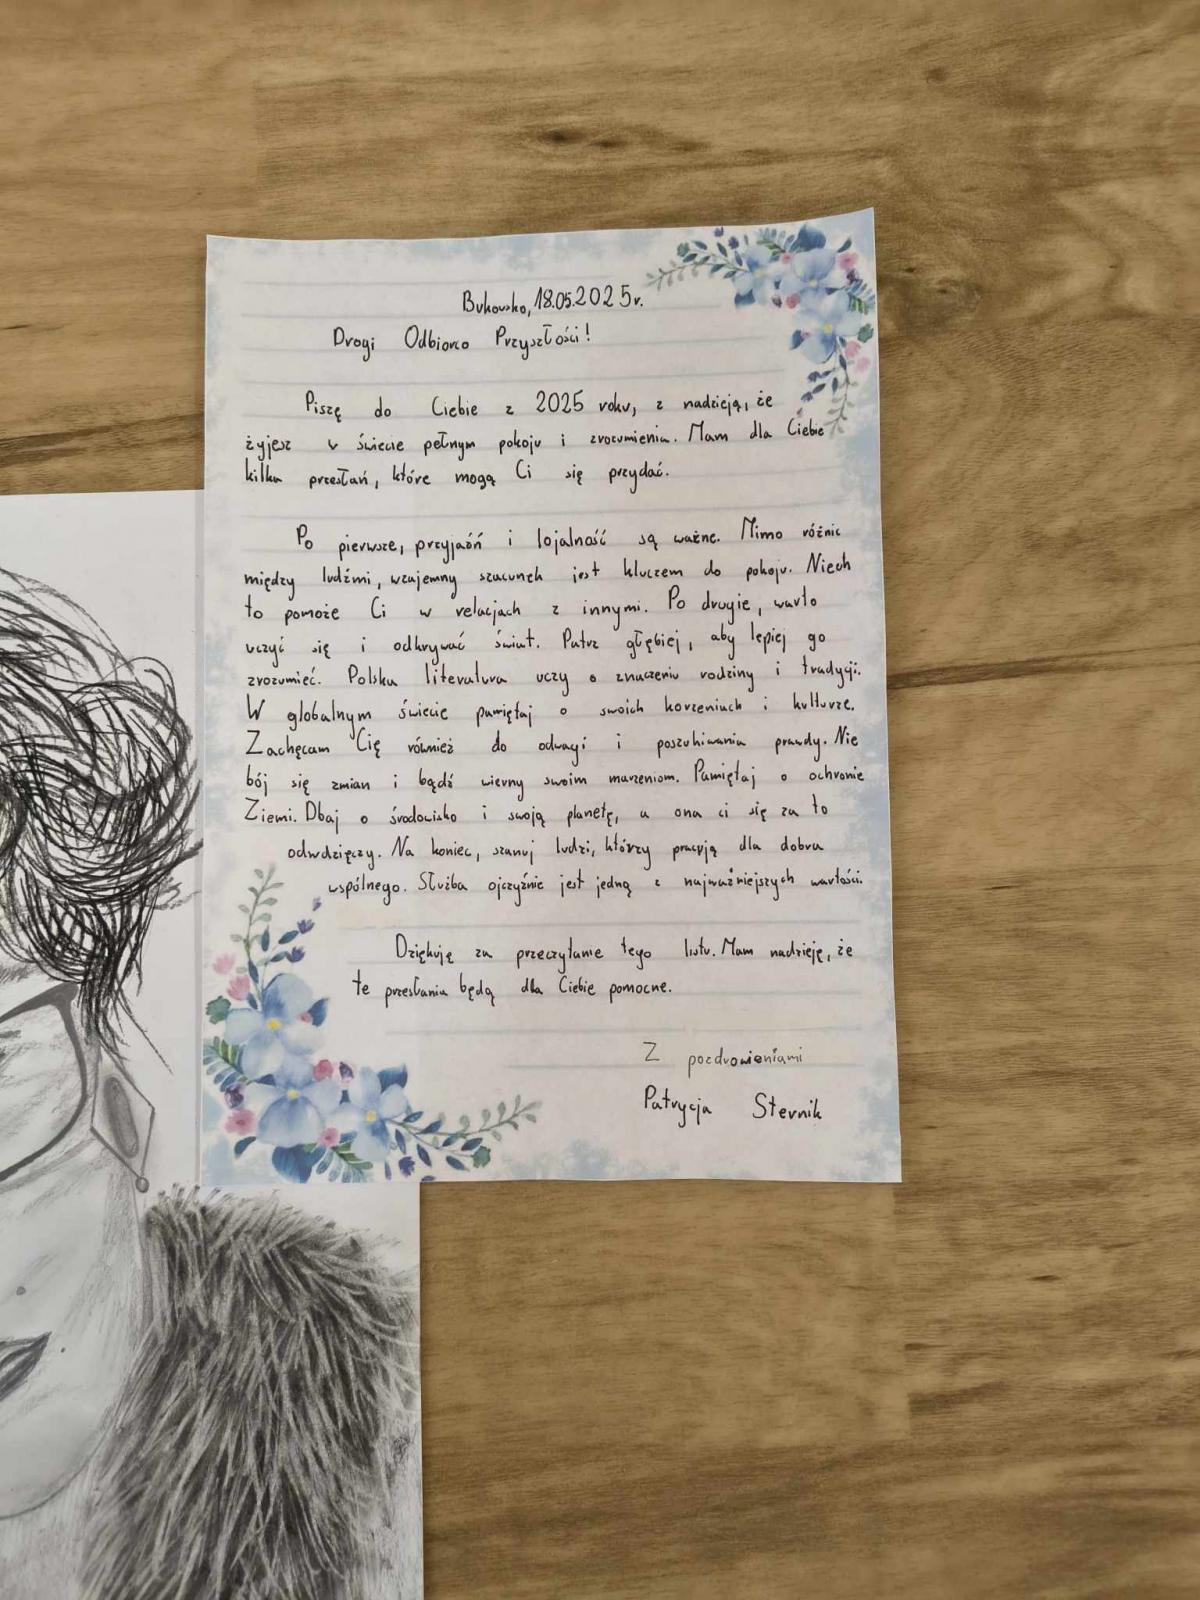 Bukowsko, 18.05.2025r.
Drogi Odbiorco Przyszłości!
Piszę do Ciebie z 2025 roku, z nadzieją, że
żyjesz w świecie pełnym pokoju i zrozumienia. Mam dla Ciebie
kilka przesłań, które mogą Ci się przydać.
Po pierwsze, przyjaźń i lojalność są ważne. Mimo różnic
między ludźmi, wzajemny szacunek jest kluczem do pokoju. Niech
to pomoże Ci w relacjach z innymi. Po drugie, warto
uczyć się i odkrywać świat. Patrz głębiej, aby lepiej go
zrozumieć. Polska literatura uczy o znaczeniu rodziny i tradycji.
W globalnym świecie pamiętaj o swoich korzeniach i kulturze.
Zachęcam Cię również do odwagi i poszukiwania prawdy. Nie
bój się zmian i bądź wierny swoim marzeniom. Pamiętaj o ochronie
Ziemi. Dbaj o środowisko i swoją planetę, a ona ci się za to
odwdzięczy. Na koniec, szanuj ludzi, którzy pracują dla dobra
wspólnego. Służba ojczyźnie jest jedną z najważniejszych wartości.
Dziękuję za przeczytanie tego listu. Mam nadzieję, że
te przesłania będą dla Ciebie pomocne.
Z pozdrowieniami
Patrycja Sternik